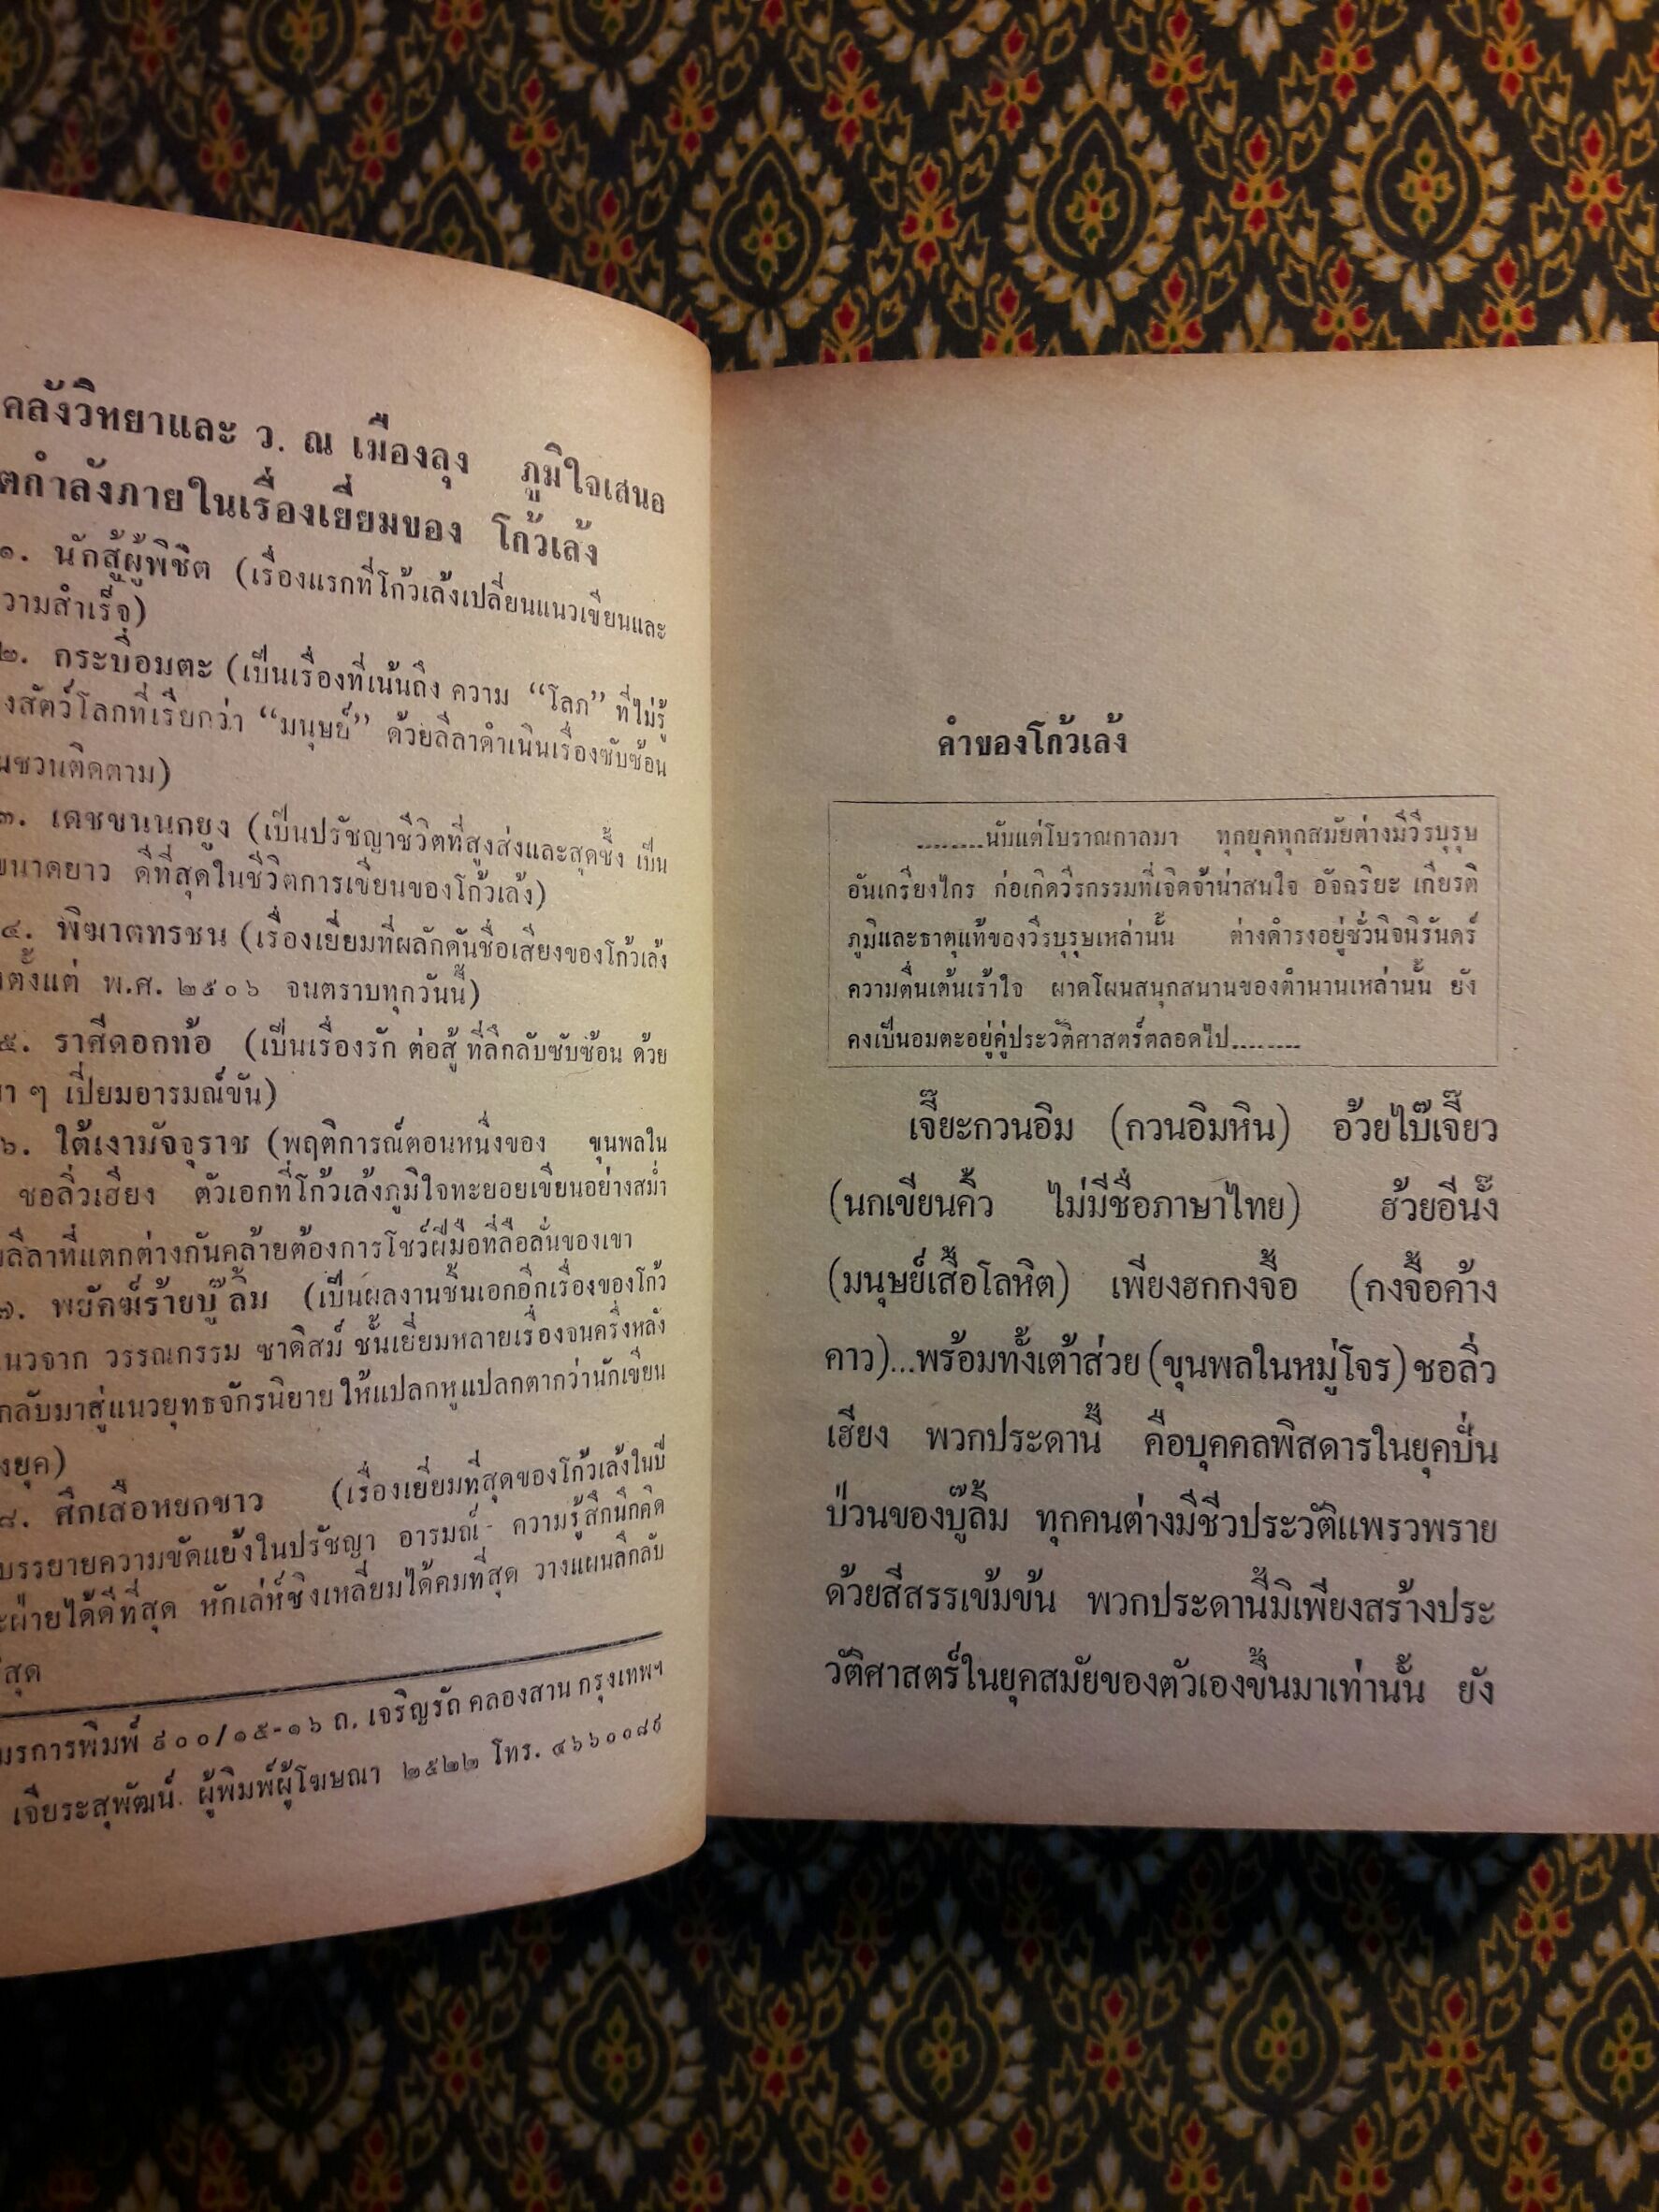 คลังวิทยาและ ว. ณ เมืองลุง ภูมิใจเสนอ
ตกำลังภายในเรื่องเยี่ยมของ โก้วเล้ง
๑. นักสู้ผู้พิชิต (เรื่องแรกที่โก้วเล้งเปลี่ยนแนวเขียนและ
วามสำเร็จ)
๒. กระบี่อมตะ (เป็นเรื่องที่เน้นถึง ความ “โลภ” ที่ไม่รู้
งสัตว์โลกที่เรียกว่า “มนุษย์” ด้วยลีลาดำเนินเรื่องซับซ้อน
นชวนติดตาม)
๓. เดชขนนกยูง (เป็นปรัชญาชีวิตที่สูงส่งและสุดซึ้ง เป็น
ขนาดยาว ดีที่สุดในชีวิตการเขียนของโก้วเล้ง)
๔. พิฆาตทรชน (เรื่องเยี่ยมที่ผลักดันชื่อเสียงของโก้วเล้ง
ตั้งแต่ พ.ศ. ๒๕๐๖ จนตราบทุกวันนี้)
๕. ราศีดอกท้อ (เป็นเรื่องรัก ต่อสู้ ที่ลึกลับซับซ้อน ด้วย
ๆ เปี่ยมอารมณ์ขัน)
๖. ใต้เงามัจจุราช (พฤติการณ์ตอนหนึ่งของ ขุนพลใน
ชอลิ่วเฮียง ตัวเอกที่โก้วเล้งภูมิใจทะยอยเขียนอย่างสม่ำ
ลีลาที่แตกต่างกันคล้ายต้องการโชว์ฝีมือที่ลือลั่นของเขา
๗. พยัคฆ์ร้ายบู๊ลิ้ม (เป็นผลงานชิ้นเอกอีกเรื่องของโก้ว
นวจาก วรรณกรรม ซาดิสม์ ชั้นเยี่ยมหลายเรื่องจนครึ่งหลัง
กลับมาสู่แนวยุทธจักรนิยาย ให้แปลกหูแปลกตากว่านักเขียน
งยุค)
๘. ศึกเสือหยกขาว (เรื่องเยี่ยมที่สุดของโก้วเล้งในปี
บรรยายความขัดแย้งในปรัชญา อารมณ์ - ความรู้สึกนึกคิด
ะฝ่ายได้ดีที่สุด หักเล่ห์ชิงเหลี่ยมได้คมที่สุด วางแผนลึกลับ
สุด
รการพิมพ์ ๙๐๐/๑๕-๑๖ ถ. เจริญรัถ คลองสาน กรุงเทพฯ
เจียระสุพัฒน์. ผู้พิมพ์ผู้โฆษณา ๒๕๒๒ โทร. ๔๖๖๐๐๘๙
คำของโก้วเล้ง
........นับแต่โบราณกาลมา ทุกยุคทุกสมัยต่างมีวีรบุรุษ
อันเกรียงไกร ก่อเกิดวีรกรรมที่เจิดจ้าน่าสนใจ อัจฉริยะ เกียรติ
ภูมิและธาตุแท้ของวีรบุรุษเหล่านั้น ต่างดำรงอยู่ชั่วนิจนิรันดร์
ความตื่นเต้นเร้าใจ ผาดโผนสนุกสนานของตำนานเหล่านั้น ยัง
คงเป็นอมตะอยู่คู่ประวัติศาสตร์ตลอดไป........
เจี๊ยะกวนอิม (กวนอิมหิน) อ้วยไบ๊เจี๊ยว
(นกเขียนคิ้ว ไม่มีชื่อภาษาไทย) ฮ้วยอีนั๊ง
(มนุษย์เสื้อโลหิต) เพียงฮกกงจื้อ (กงจื้อค้าง
คาว)...พร้อมทั้งเต้าส่วย (ขุนพลในหมู่โจร) ชอลิ่ว
เฮียง พวกประดานี้ คือบุคคลพิสดารในยุคปั่น
ป่วนของบู๊ลิ้ม ทุกคนต่างมีชีวประวัติแพรวพราย
ด้วยสีสรรเข้มข้น พวกประดานี้มิเพียงสร้างประ
วัติศาสตร์ในยุคสมัยของตัวเองขึ้นมาเท่านั้น ยัง